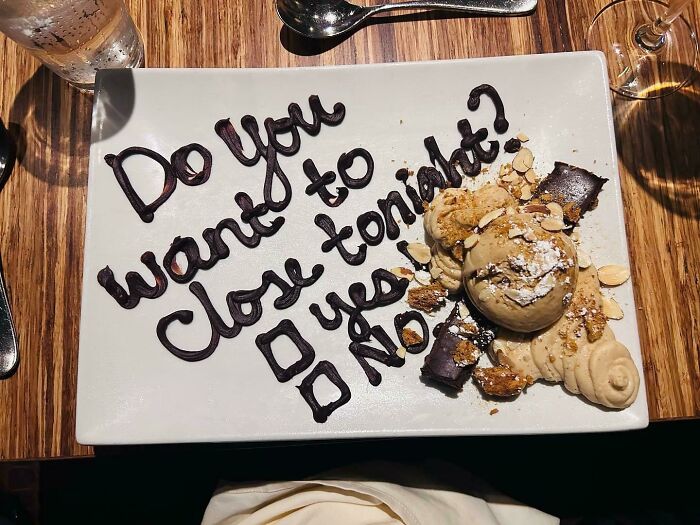 Do You
want to
close tonight?
□ yes!
□ No